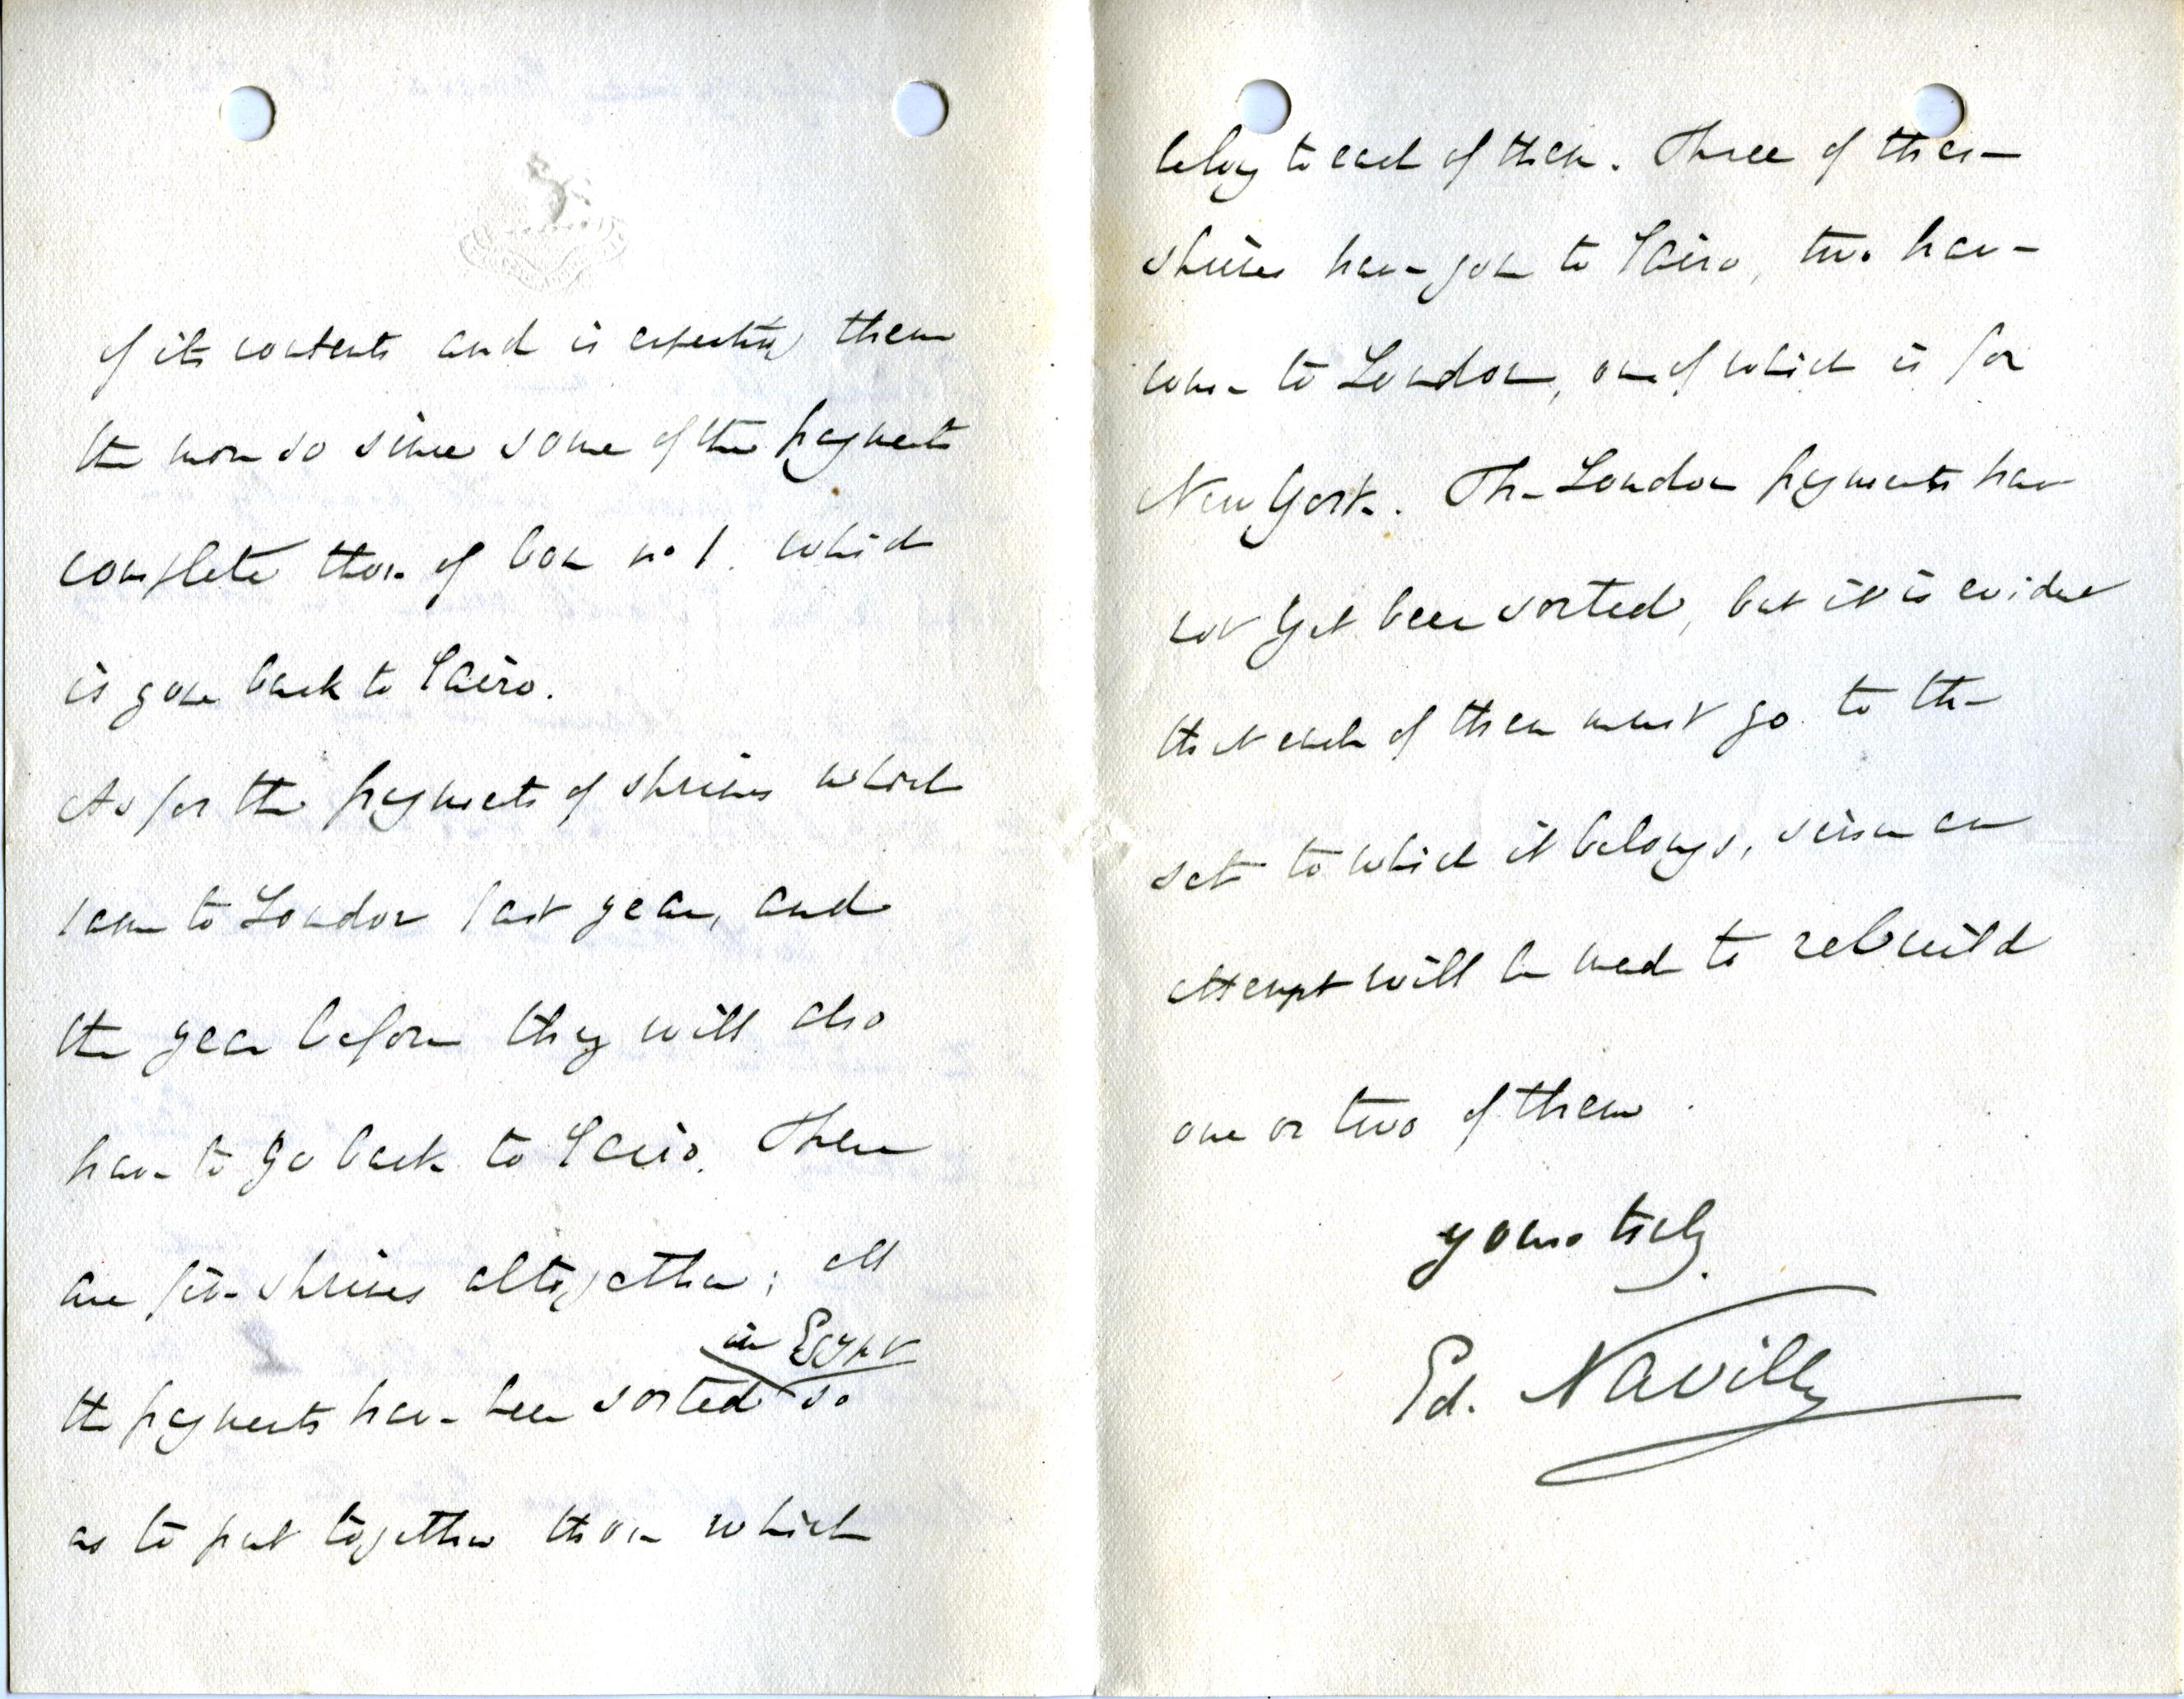 of its contents and is expecting them
the more so since some of the fragments
complete those of box no 1. which
is gone back to Cairo.
As for the fragments of shrines which
came to London last year, and
the year before they will also
have to go back to Cairo. There
are five shrines altogether; all
in Egypt
the fragments have been sorted so
as to put together those which
belong to each of them. Three of these
shrines have gone to Cairo, two have
come to London, one of which is for
New York. The London fragments have
not yet been sorted, but it is evident
that each of them must go to the
set to which it belongs, since an
attempt will be made to rebuild
one or two of them.
yours truly
Ed. Naville